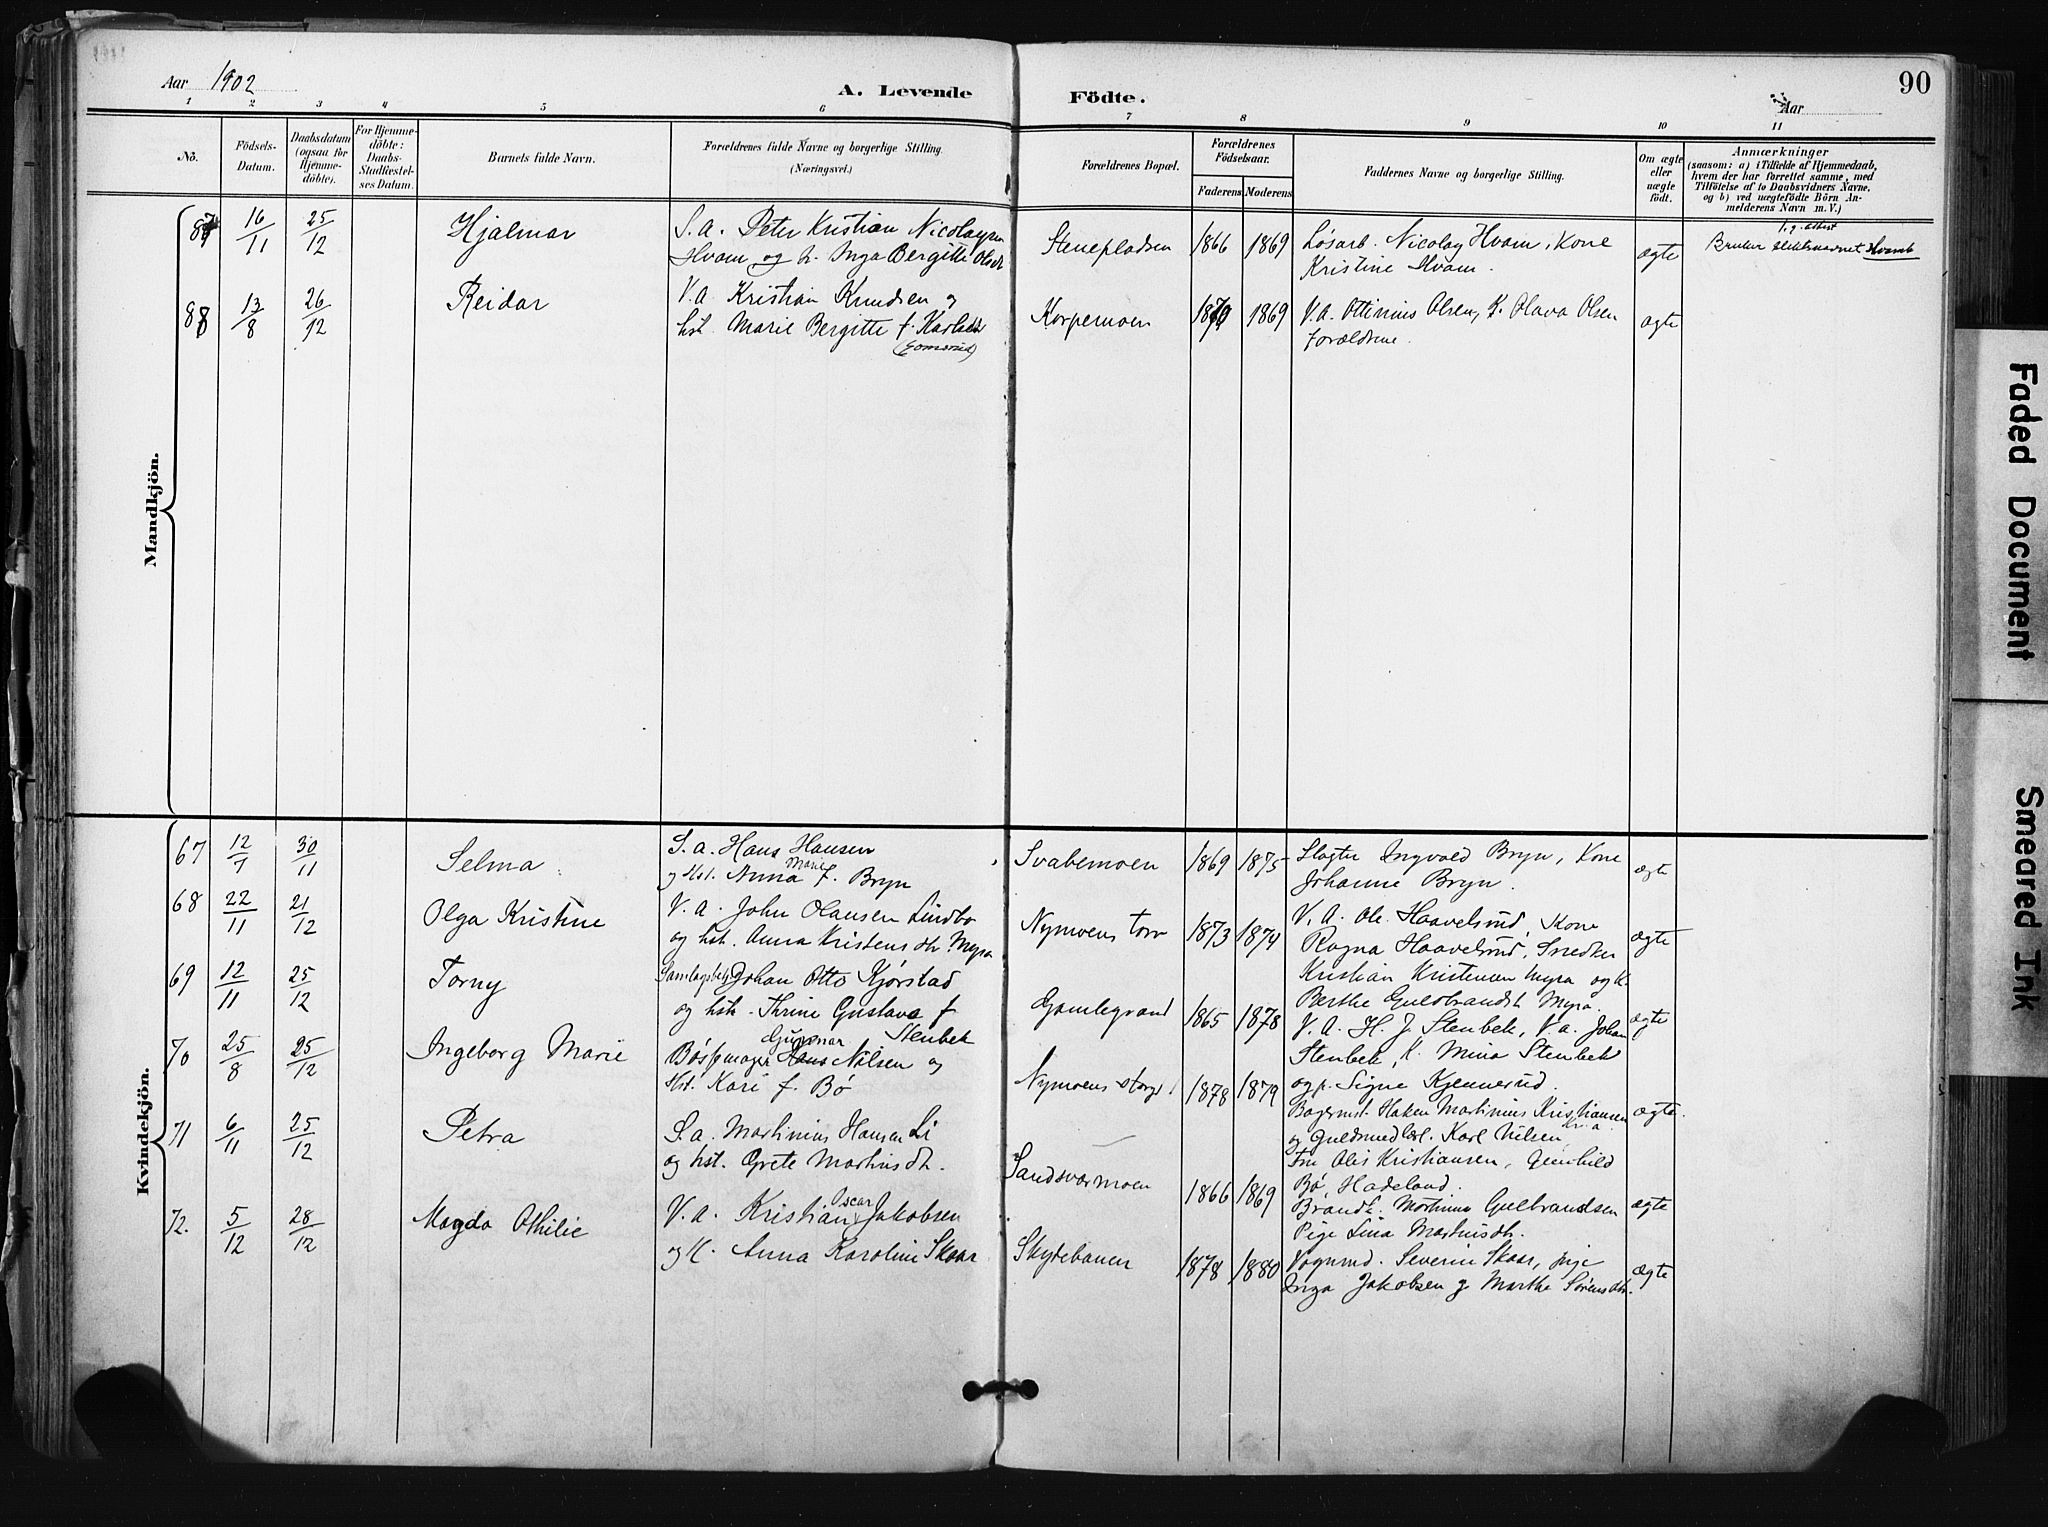 Aar 1902
A. Levende
Födte.
Aar
90
1 2 3 4 5 6 7 8 9 10 11
No.
Födsels-
Datum.
Daabsdatum
(ogsaa for
Hjemme-
döbte).
For Hjemme-
döbte:
Daabs-
Stadfæstel-
ses Datum.
Barnets fulde Navn.
Forældrenes fulde Navne og borgerlige Stilling.
(Næringsvei.)
Forældrenes Bopæl.
Forældrenes
Födselsaar.
Faderens
Moderens
Faddernes Navne og borgerlige Stilling.
Om ægte
eller
uægte
födt.
Anmærkninger
(saasom: a) i Tilfælde af Hjemmedaab,
hvem der har forrettet samme, med
Tilföielse af to Daabsvidners Navne,
og b) ved uægtefödte Börn An-
melderens Navn m. V.)
Mandkjön.
87 16/11 25/12 Hjalmar
S. a. Peter Kristian Nicolaysen
Hvam og h. Inga Bergitte Olsdt
Stenepladsen 1866 1869
Løsarb. Nicolay Hvam, Kone
Kristine Hvam.
ægte
Bruker slektsnavnet Hvamb
88 13/8 26/12 Reidar
V. A. Kristian Knudsen og
hst. Marie Bergitte f. Karlsen
(Gomsrud)
Korpemoen 1870 1869
V. a. Ottinius Olsen, K. Olava Olsen
forældrene.
ægte
Kvindekjön.
67 12/7 30/11 Selma
S. a. Hans Hansen
og Hst. Anna Marie f. Bryn
Svabemoen 1869 1875
Slagter Ingvald Bryn, Kone
Johanne Bryn.
ægte
68 22/11 21/12 Olga Kristine
V. A. John Olausen Lindbo
og hst. Anna Kristensdtr. Myra
Nymoens torv 1873 1874
V. A. Ole Haavelsrud, Kone
Ragna Haavelsrud, Snedker
Kristian Kristensen Myra og K.
Berthe Guldbrandst. Myra.
ægte
69 12/11 25/12 Torny
Samlagsbest. Johan Otto Kjørstad
og hst. Thrine Gustava f.
Stenbek
Gamlegrand 1865 1878
V. A. H. J. Stenbek, V. a. Johan
Stenbek, K. Mina Stenbek
og p. Signe Kjennerud.
ægte
70 25/8 25/12 Ingeborg Marie
Gunnar
Bøssemager Hans Nilsen og
Hst. Kari f. Bø
Nymoens storgd. 1878 1879
Bagermst. Haken Martinius Kristiansen
og Guldsmedlærl. Karl Nilsen,
Fru Olis Kristiansen, Gunhild
Bø, Hadeland.
ægte.
71 6/11 25/12 Petra
S. a. Martinius Hansen Li
og hst. Grete Martinsdtr.
Sandsværmoen 1866 1869
Brandk. Martinus Gulbrandsen
Pige Lina Martinsdtr.
ægte
72. 5/12 28/12 Magda Othilie
V. a. Kristian Oscar Jakobsen
og K. Anna Karoline Skaar
Skytebanen 1878 1880
Vognmd. Severin Skaar, pige
Inga Jakobsen og Marthe Sørensdtr.
ægte
Faded Document
Smeared Ink